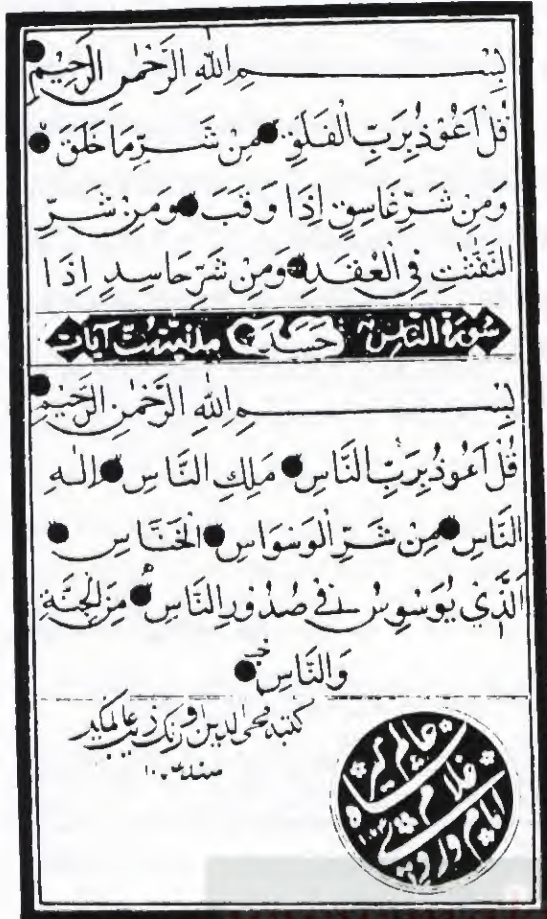 بِسْمِ اللّٰهِ الرَّحْمٰنِ الرَّحِيْمِ
قُلْ اَعُوْذُ بِرَبِّ الْفَلَقِ مِنْ شَرِّ مَا خَلَقَ
وَمِنْ شَرِّ غَاسِقٍ اِذَا وَقَبَ وَمِنْ شَرِّ
النَّفّٰثٰتِ فِي الْعُقَدِ وَمِنْ شَرِّ حَاسِدٍ اِذَا
سورة الناس حَسَدَ مدنية آيات
بِسْمِ اللّٰهِ الرَّحْمٰنِ الرَّحِيْمِ
قُلْ اَعُوذُ بِرَبِّ النَّاسِ مَلِكِ النَّاسِ اِلٰهِ
النَّاسِ مِنْ شَرِّ الْوَسْوَاسِ الْخَنَّاسِ
الَّذِي يُوَسْوِسُ فِي صُدُورِ النَّاسِ مِنَ الْجِنَّةِ
وَالنَّاسِ
كتبه محى الدين اورنگ زيب عالمگير
سنه
عالمگير
شاه
غلام